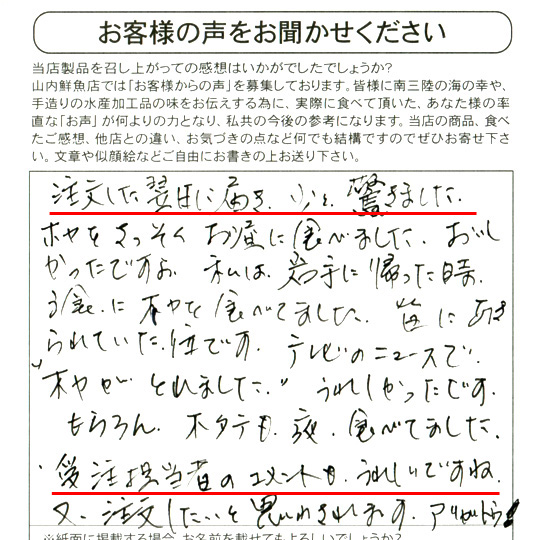 お客様の声をお聞かせください
当店製品を召し上がっての感想はいかがでしたでしょうか？
山内鮮魚店では「お客様からの声」を募集しております。皆様に南三陸の海の幸や、
手造りの水産加工品の味をお伝えする為に、実際に食べて頂いた、あなた様の率
直な「お声」が何よりの力となり、私共の今後の参考になります。当店の商品、食べ
たご感想、他店との違い、お気づきの点など何でも結構ですのでぜひお寄せ下さ
い。文章や似顔絵などご自由にお書きの上お送り下さい。
注文した翌日に届き、少々驚きました。
ホヤをさっそくお昼に食べました。おいし
かったですよ。私は、岩手に帰った時、
食に ホヤを食べてました。笛に
られていた。です。テレビのニュースで、
"ホヤがとれました。" うれしかったです。
もちろん、ホタテも、夜、食べてました。
受注担当者のコメントも、うれしいですね。
又、注文したいと思います。アリガトウ!
※紙面に掲載する場合、お名前を載せてもよろしいでしょうか?